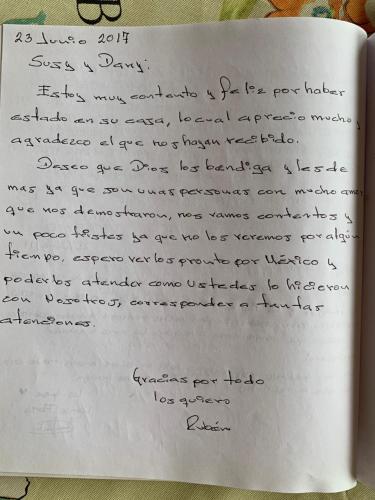 23 Junio 2017
Susy y Dany:
Estoy muy contento y feliz por haber
estado en su casa, lo cual aprecio mucho y
agradezco el que nos hayan recibido.
Deseo que Dios los bendiga y les de
mas ya que son unas personas con mucho amor
que nos demostraron, nos vamos contentos y
un poco tristes ya que no los veremos por algún
tiempo, espero verlos pronto por México y
poderlos atender como ustedes lo hicieron
con nosotros, corresponder a tantas
atenciones.
Gracias por todo
los quiero
Rubén
B